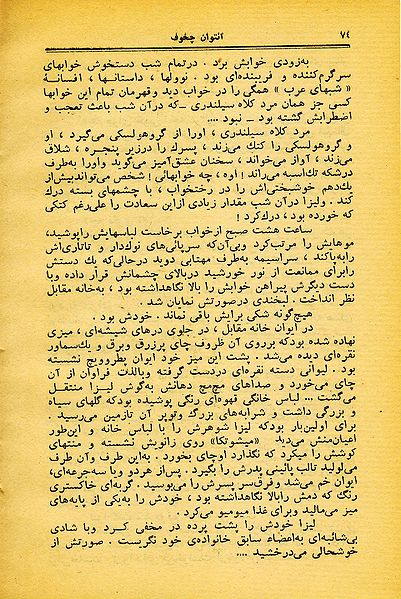 ۷٤
آنتوان چخوف
به‌زودی خوابش برد . درتمام شب دستخوش خوابهای
سرگرم‌کننده و فریبنده‌ای بود . نوولها ، داستانها ، افسانهٔ
« شبهای عرب » همگی را در خواب دید وقهرمان تمام این خوابها
کسی جز همان مرد کلاه سیلندری ـ که‌در آن شب باعث تعجب و
اضطرابش گشته بود ـ نبود ....
مرد کلاه سیلندری ، اورا از گروهولسکی می‌گیرد ، او
و گروهولسکی را کتك می‌زند ، پسرك را درزیر پنجره ، شلاق
می‌زند ، آواز می‌خواند ، سخنان عشق‌آمیز می‌گوید واورا به‌طرف
درشکه تك‌اسبه می‌راند ! اوه ، چه خوابهائی ! شخص می‌تواندبیش‌از
یك‌دهم خوشبختی‌اش را در رختخواب ، با چشمهای بسته درك
کند . ولیزا درآن شب مقدار زیادی ازاین سعادت را علی‌رغم کتکی
که خورده بود ، درك‌کرد !
ساعت هشت صبح ازخواب برخاست لباسهایش راپوشید،
موهایش را مرتب‌کرد وبی‌آن‌که سرپائی‌های نوك‌دار و تاتاری‌اش
رابه‌پاکند ، سراسیمه به‌طرف مهتابی دوید درحالی‌که یك دستش
رابرای ممانعت از نور خورشید دربالای چشمانش قرار داده وبا
دست دیگرش پیراهن خوابش را بالا نگاهداشته بود ، به‌خانه مقابل
نظر انداخت . لبخندی درصورتش نمایان شد .
هیچ‌گونه شکی برایش باقی نماند . خودش بود .
در ایوان خانه مقابل ، در جلوی درهای شیشه‌ای ، میزی
نهاده شده بودکه برروی آن ظروف چای پرزرق وبرق و یك‌سماور
نقره‌ای دیده می‌شد . پشت این میز خود ایوان پطروویچ نشسته
بود . لیوانی دسته نقره‌ای دردست گرفته وبالذت فراوان از آن
چای می‌خورد و صداهای مچ‌مچ دهانش به‌گوش لیزا منتقل
می‌گشت ... لباس خانگی قهوه‌ای رنگی پوشیده بودکه گلهای سیاه
و بزرگی داشت و شرابه‌های بزرگ وتوپر آن تازمین می‌رسید .
برای اولین‌بار بودکه لیزا شوهرش را با لباس خانه و این‌طور
اعیان‌منش می‌دید «میشوتکا» روی زانویش نشسته و منتهای
کوشش را میکرد که نگذارد اوچای بخورد . به‌این طرف وآن طرف
می‌لولید تالب پائینی پدرش را بگیرد . پس‌از هردو ویا سه‌جرعه‌ای،
ایوان خم می‌شد وفرق‌سر پسرش را می‌بوسید . گربه‌ای خاکستری
رنگ که دمش رابالا نگاهداشته بود ، خودش را به‌یکی از پایه‌های
میز می‌مالید وبرای غذا میومیو می‌کرد .
لیزا خودش را پشت پرده در مخفی کرد وبا شادی
بی‌شائبه‌ای به‌اعضاء سابق خانواده‌ی خود نگریست . صورتش از
خوشحالی می‌درخشید ....